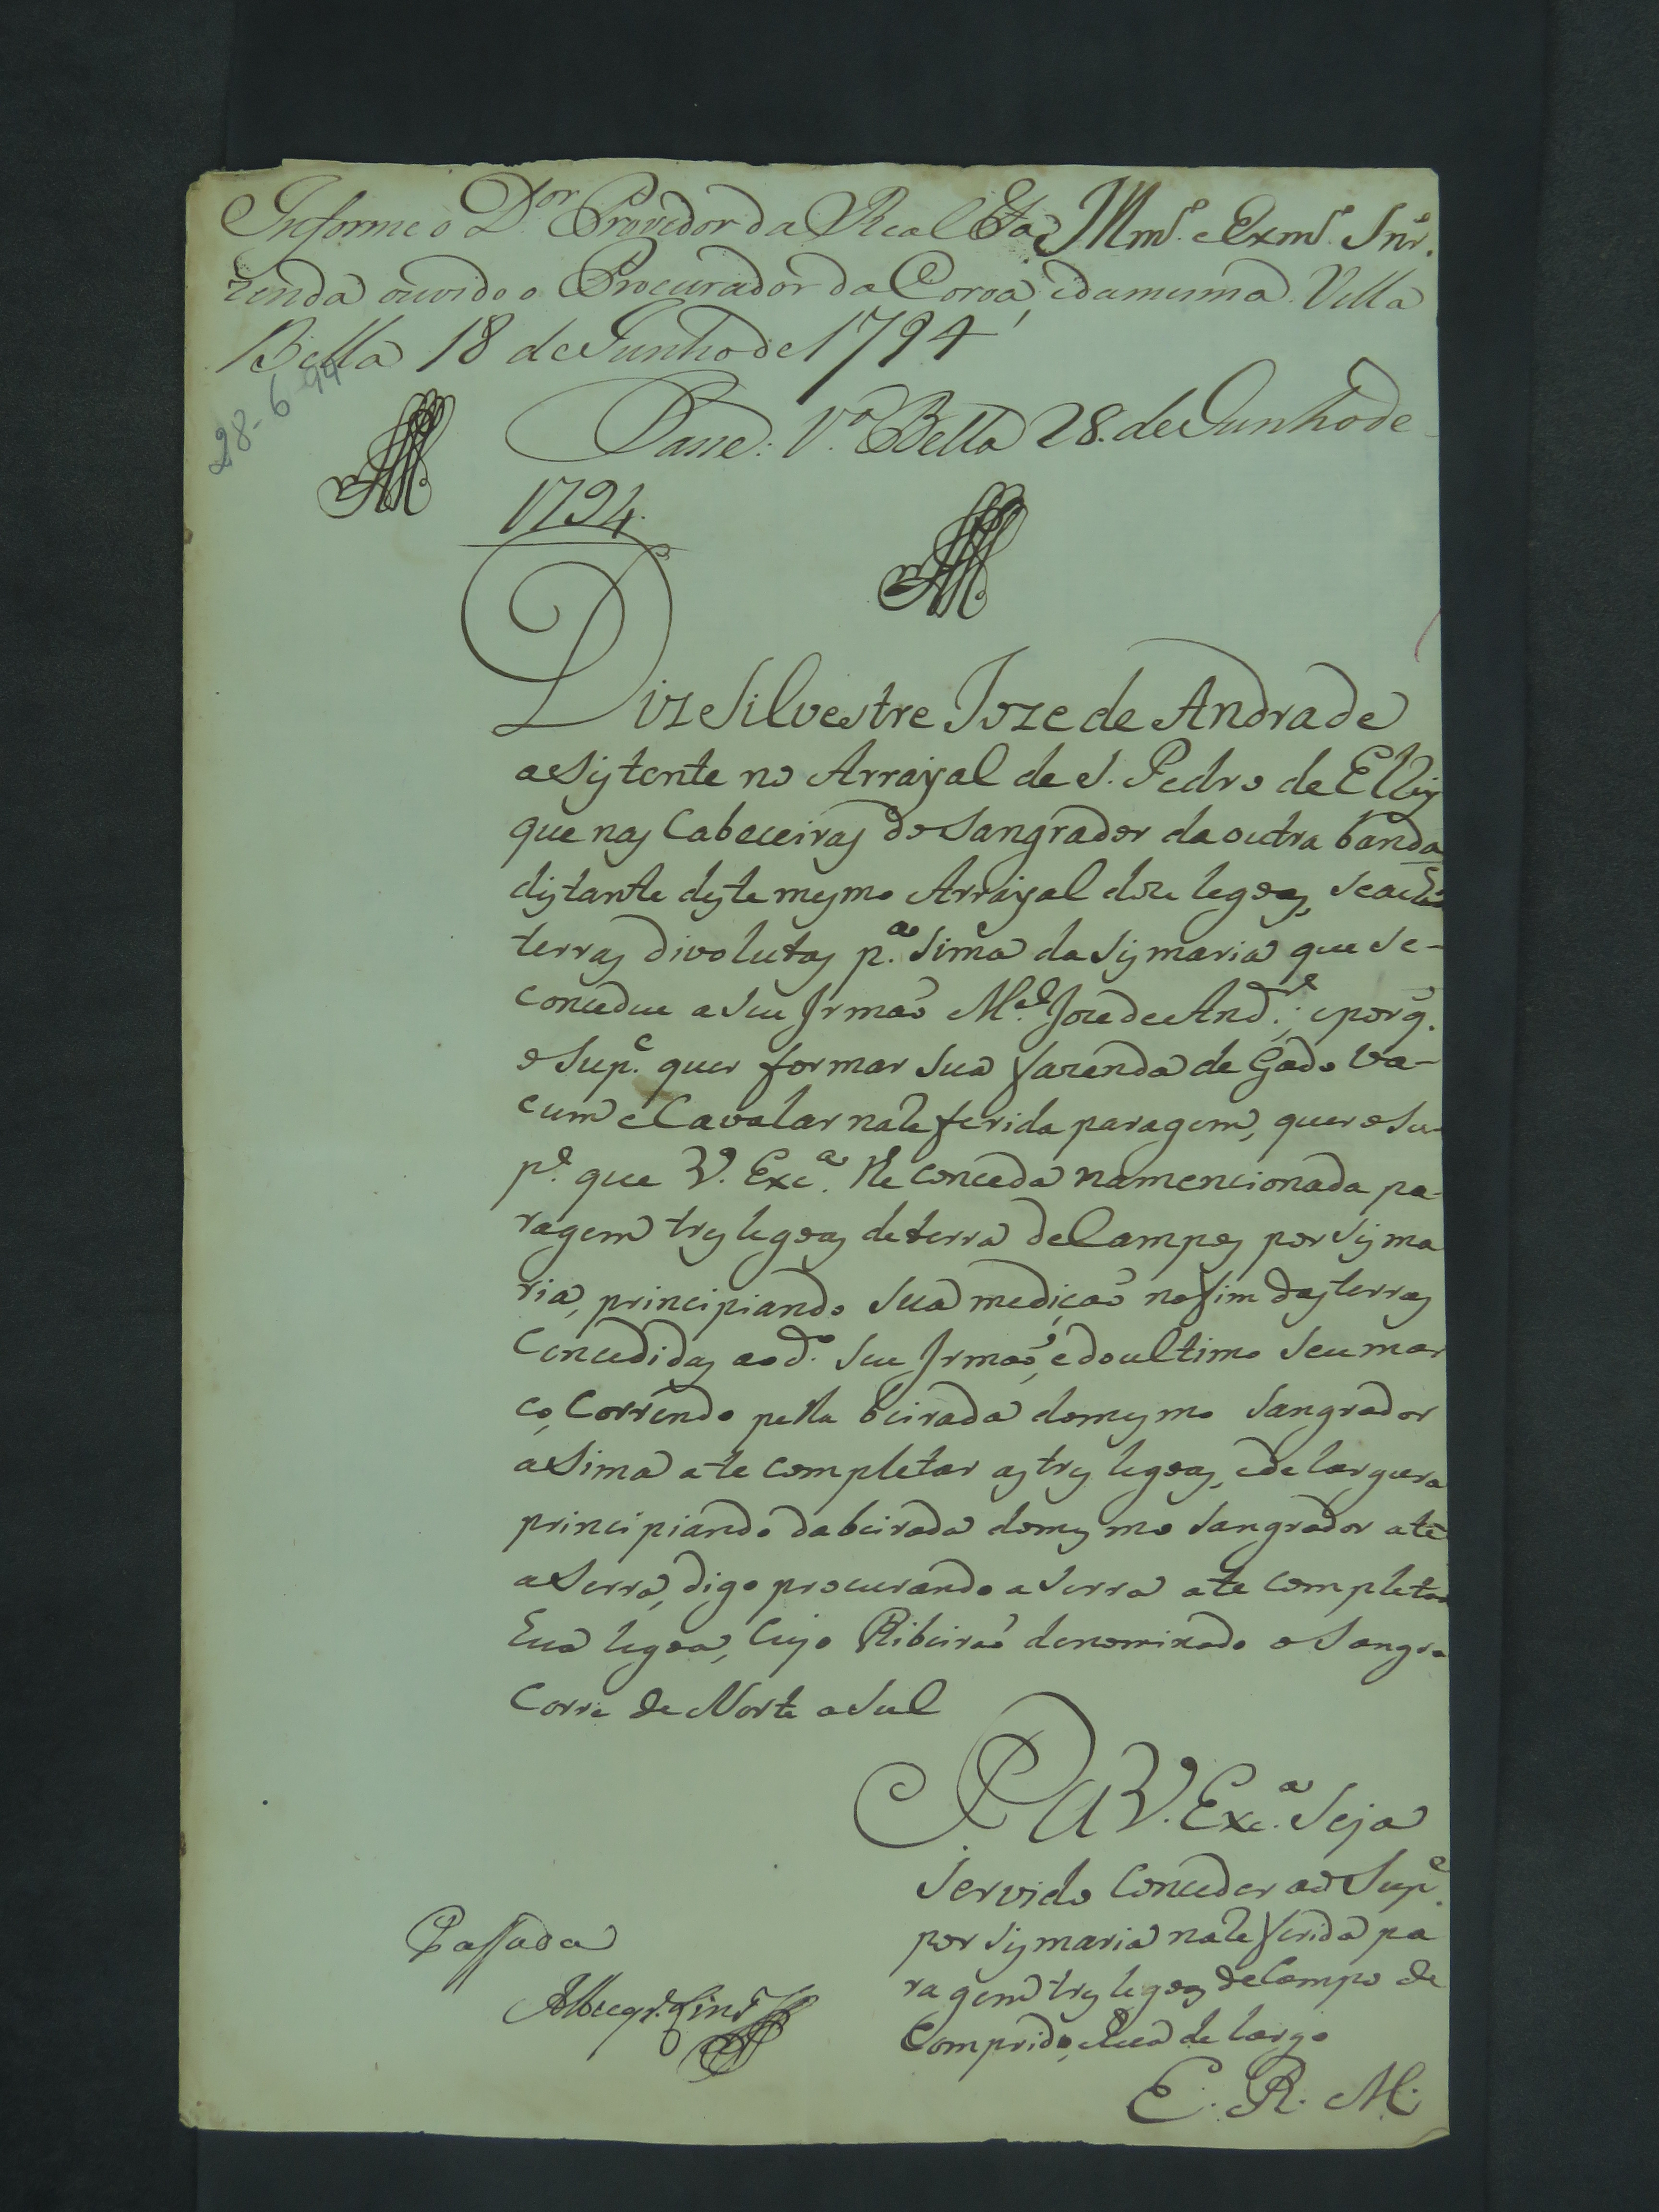 Informe o D.or Provedor da Real Fa Illm.o e Exm.o Snr.
zenda ouvido o Procurador da Coroa, e da mesma. Villa
Bella 18 de Junho de 1794
28-6-94
Passe. V.a Bella 28. de Junho de
1794.
Diz Silvestre Joze de Andrade
asistente no Arrayal de S. Pedro de El Rey
que nas Cabeceiras do Sangrador da outra banda
distante deste mesmo Arrayal doze legoas, se acha
terras divolutas p.a sima da sismaria que se-
concedeu a seu Irmaõ M.el Joze de And.e; e porq.
o Sup.e quer formar sua fazenda de Gado Va-
cum e Cavalar na referida paragem, quer o Su-
p.e que V. Exc.a lhe conceda na mencionada pa-
ragem tres legoas de terra de Campos por sisma
ria, principiando sua mediçaõ no fim das terras
Concedidas ao d.o seu Irmaõ, e do ultimo seu mar
co, Correndo pella beirada do mesmo Sangrador
asima ate completar as tres legoas, e de largura
principiando da beirada do mesmo Sangrador até
a Serra, digo procurando a Serra ate completar
hua legoa, Cujo Ribeiraõ denominado o Sangra
Corre de Norte a Sul
P. a V. Exc.a seja
servido Conceder ao Sup.e
por sismaria na referida pa
ragem tres legoas de Campo de
Comprido, e hua de largo
Passada
E. R. M.